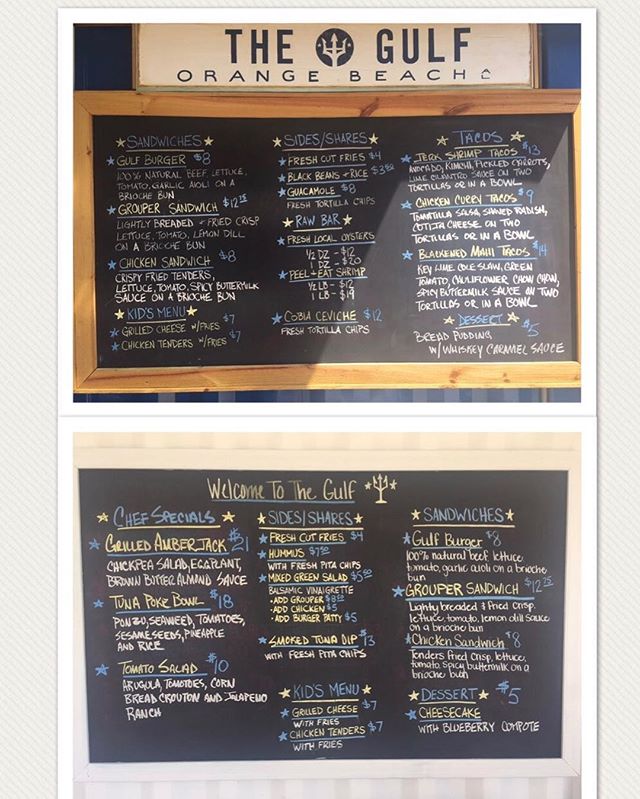 THE GULF
ORANGE BEACH
SANDWICHES
GULF BURGER $8
100% NATURAL BEEF, LETTUCE,
TOMATO, GARLIC AIOLI ON A
BRIOCHE BUN
GROUPER SANDWICH $12.25
LIGHTLY BREADED + FRIED CRISP
LETTUCE, TOMATO, LEMON DILL
ON A BRIOCHE BUN
CHICKEN SANDWICH $8
CRISPY FRIED TENDERS,
LETTUCE, TOMATO, SPICY BUTTERMILK
SAUCE ON A BRIOCHE BUN
KID'S MENU
GRILLED CHEESE W/FRIES $7
CHICKEN TENDERS W/FRIES $7
SIDES/SHARES
FRESH CUT FRIES $4
BLACK BEANS + RICE $3.50
GUACAMOLE $8
FRESH TORTILLA CHIPS
RAW BAR
FRESH LOCAL OYSTERS
1/2 DZ - $12
1 DZ - $20
PEEL + EAT SHRIMP
1/2 LB - $12
1 LB - $19
COBIA CEVICHE $12
FRESH TORTILLA CHIPS
TACOS
JERK SHRIMP TACOS $13
AVOCADO, KIMCHI, PICKLED CARROTS,
LIME CILANTRO SAUCE ON TWO
TORTILLAS OR IN A BOWL
CHICKEN CURRY TACOS $9
TOMATILLA SALSA, SHAVED RADISH,
COTIJA CHEESE ON TWO
TORTILLAS OR IN A BOWL
BLACKENED MAHI TACOS $14
KEY LIME COLE SLAW, GREEN
TOMATO, CAULIFLOWER CHOW CHOW,
SPICY BUTTERMILK SAUCE ON TWO
TORTILLAS OR IN A BOWL
DESSERT $5
BREAD PUDDING
W/WHISKEY CARAMEL SAUCE
Welcome To The Gulf
CHEF SPECIALS
GRILLED AMBERJACK $21
CHICKPEA SALAD, EGGPLANT,
BROWN BUTTER ALMOND SAUCE
TUNA POKE BOWL $18
PONZU, SEAWEED, TOMATOES,
SESAME SEEDS, PINEAPPLE
AND RICE
TOMATO SALAD $10
ARUGULA, TOMATOES, CORN
BREAD CROUTON AND JALAPENO
RANCH
SIDES/SHARES
FRESH CUT FRIES $4
HUMMUS $7.50
WITH FRESH PITA CHIPS
MIXED GREEN SALAD $5.50
BALSAMIC VINAIGRETTE
·ADD GROUPER $8.50
·ADD CHICKEN $5
·ADD BURGER PATTY $5
SMOKED TUNA DIP $13
WITH FRESH PITA CHIPS
KID'S MENU
GRILLED CHEESE $7
WITH FRIES
CHICKEN TENDERS $7
WITH FRIES
SANDWICHES
Gulf Burger $8
100% natural beef lettuce
tomato, garlic aioli on a brioche
bun
GROUPER SANDWICH $12.25
Lightly breaded & Fried Crisp,
lettuce, tomato, lemon dill sauce
on a brioche bun
Chicken Sandwich $8
Tenders Fried Crisp, lettuce,
tomato, spicy buttermilk on a
brioche bun
DESSERT $5
CHEESECAKE
WITH BLUEBERRY COMPOTE